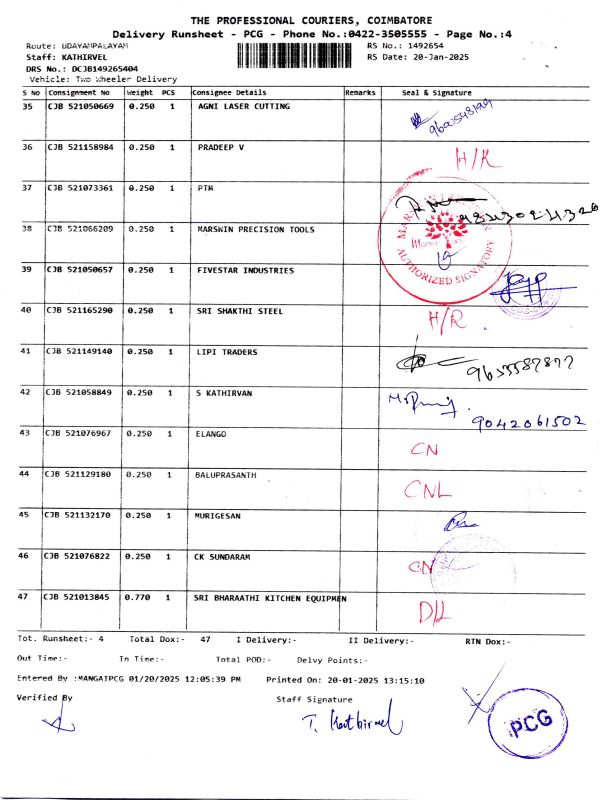 THE PROFESSIONAL COURIERS, COIMBATORE
Delivery Runsheet - PCG - Phone No.:0422-3505555 - Page No.:4
Route: UDAYAMPALAYAM RS No.: 1492654
Staff: KATHIRVEL RS Date: 20-Jan-2025
DRS No.: DCJB149265404
Vehicle: Two Wheeler Delivery
S No Consignment No Weight PCS Consignee Details Remarks Seal & Signature
35 CJB 521050669 0.250 1 AGNI LASER CUTTING
36 CJB 521158984 0.250 1 PRADEEP V H/R
37 CJB 521073361 0.250 1 PTM
38 CJB 521066209 0.250 1 MARSWIN PRECISION TOOLS
AUTHORIZED SIGNATORY
39 CJB 521050657 0.250 1 FIVESTAR INDUSTRIES
40 CJB 521165290 0.250 1 SRI SHAKTHI STEEL H/R
41 CJB 521149140 0.250 1 LIPI TRADERS
42 CJB 521058849 0.250 1 S KATHIRVAN 9042061502
43 CJB 521076967 0.250 1 ELANGO CN
44 CJB 521129180 0.250 1 BALUPRASANTH CNL
45 CJB 521132170 0.250 1 MURIGESAN
46 CJB 521076822 0.250 1 CK SUNDARAM CN
47 CJB 521013845 0.770 1 SRI BHARAATHI KITCHEN EQUIPMEN D/L
Tot. Runsheet:- 4 Total Dox:- 47 I Delivery:- II Delivery:- RTN Dox:-
Out Time:- In Time:- Total POD:- Delvy Points:-
Entered By :MANGAIPCG 01/20/2025 12:05:39 PM Printed On: 20-01-2025 13:15:10
Verified By Staff Signature
T. Kathirvel PCG